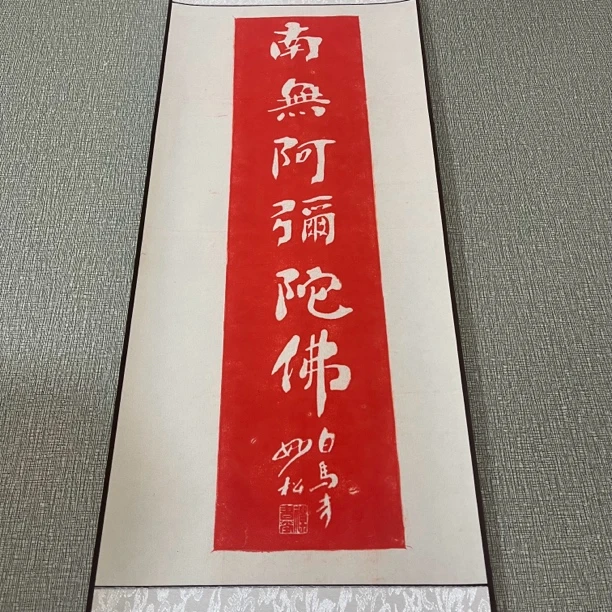 南無阿彌陀佛
白馬寺
妙松